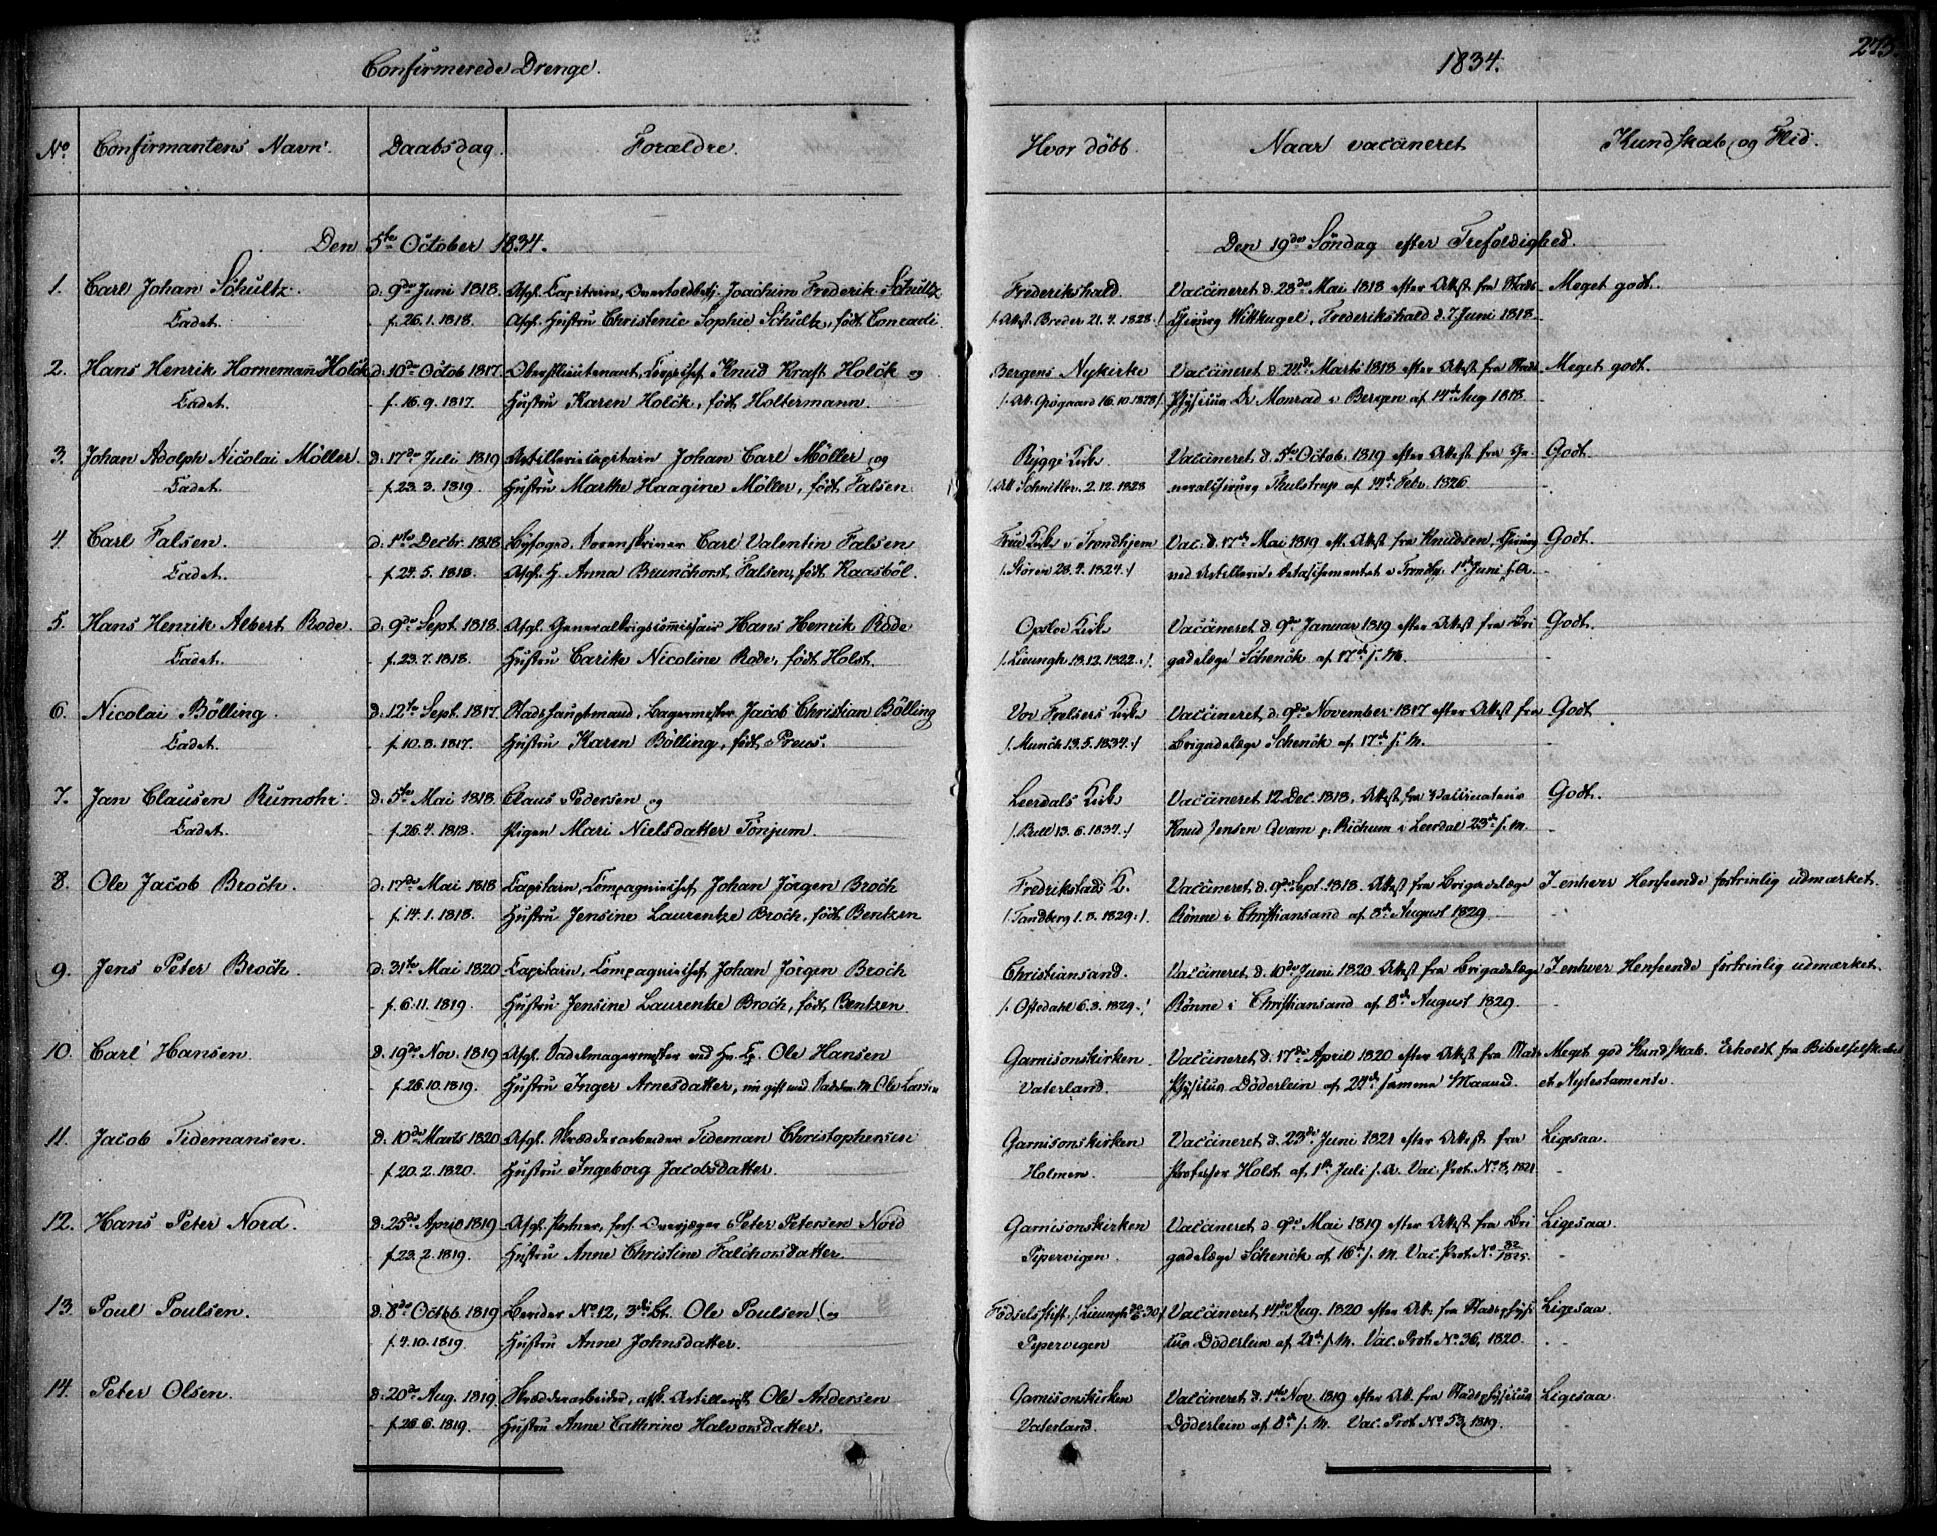 Confirmerede Drenge.
1834.
No. Confirmantens Navn. Daabsdag. Forældre. Hvor döbt. Naar vaccineret Kundskab og Flid.
Den 5te October 1834. Den 19de Söndag efter Trefoldighed.
1. Carl Johan Schultz. d. 9de Juni 1818. Afgl. Capitain, Joachim Frederik Schültz Frederikshald. Vaccineret d. 28de Mai 1818 efter Attest fra Stads Meget godt.
Cadet. f. 26.1.1818. Afgl. Hustru Christenie Sophie Schultz, födt Conradi /. Attest. Breder 21.4.1828 ./ Chirurg Wittkugel, Frederikshald d. 7 Juni 1818.
2. Hans Henrik Horneman Holck d. 10de Octob 1817. Oberstlieutenant, Knud Kraft Holck og Bergens Nykirke Vaccineret d. 24de Marts 1818 efter Attest fra Stads Meget godt.
Cadet. f. 16.9.1817. Hustru Karen Holck, födt Holtermann. /. Att. Grögaard 16.10.1828 / Physicus Dr Monrad i Bergen af 14de Aug 1818.
3. Johan Adolph Nicolai Möller. d. 17de Juli 1819 Artillericapitain Johan Carl Möller og Rygge Kirke. Vaccineret d. 5te Octob. 1819 efter Attest fra Ge- Godt.
Cadet. f. 23.3.1819. Hustru Marthe Haagine Möller, födt Falsen. /. Att Schnitler. 2.12.1828 neralchirurg Thulstrup af 14de Febr. 1826
4. Carl Falsen. d. 1ste Decbr. 1818 Byfoged, Sorenskriver Carl Valentin Falsen Frue Kirke i Trondhjem Vac. d. 17de Mai 1819 eft. Attest fra Knudsen, Chirurg Godt.
Cadet. f. 24.5.1818. Afgl. H. Anna Brunchorst Falsen, födt Raasböl. /. Stören 28.4.1824 ./ ved Artilleri Detachementet i Trondhj. 1ste Juni s. A.
5. Hans Henrik Albert Rode. d. 9de Sept. 1818. Afgl. Generalkrigscommissair Hans Henrik Rode Opsloe Kirke Vaccineret d. 9de Januar 1819 efter Attest fra Bri Godt.
Cadet. f. 23.7.1818. Hustru Carike Nicoline Rode, födt Holst. /. Lieungh 18.12.1822 ./. gadelæge Schenck af 17de s. M.
6. Nicolai Bölling. d. 12te Sept. 1817. Stadshauptmand, Bagermester Jacob Christian Bölling Vor Frelsers Kirke Vaccineret d. 9de November 1817 efter Attest fra Godt
Cadet. f. 10.8.1817. Hustru Karen Bölling, födt Preus. /. Munch 13.5.1834 ./ Brigadelæge Schenck af 17de s. M.
7. Jan Clausen Rumohr. d. 5te Mai 1818. Claus Pedersen og Leerdals Kirke Vaccineret 12 Dec. 1818. Attest fra Vaccinateur Godt.
Cadet. f. 26.4.1818. Pigen Mari Nielsdatter Tönjum. /. Bull 13.6.1834 ./ Knud Jensen Qvam p. Richum i Leerdal 23de s. M.
8. Ole Jacob Broch. d. 17de Mai 1818 Capitain, Compagniechef Johan Jörgen Broch Fredrikstads K. Vaccineret d. 9de Sept. 1818. Attest fra Brigadelæge I enhver Henseende fortrinlig udmærket.
f. 14.1.1818. Hustru Jensine Laurentze Broch, födt Bentzen /. Tandberg 1.8.1829 ./. Rönne i Christiansand af 8de August 1829
9. Jens Peter Broch. d. 31te Mai 1820 Capitain, Compagniechef Johan Jörgen Broch Christiansand. Vaccineret d. 10de Juni 1820. Attest fra Brigadelæge I enhver Henseende fortrinlig udmærket.
f. 6.11.1819. Hustru Jensine Laurentze Broch, födt Bentzen. /. Oftedahl 6.8.1829 ./ Rönne i Christiansand af 8de August 1829.
10. Carl Hansen. d. 19de Nov. 1819 Afgl. Sadelmagermester Ole Hansen Garnisonskirken Vaccineret d. 17de April 1820 efter Attest fra Stads Meget god Kundskab. Erholdt fra Bibelselskabet
f. 26.10.1819. Hustru Inger Arnesdatter, nu gift med Ole Larsen Vaterland. Physicus Döderlein af 24de samme Maaned. et Nytestamente.
11. Jacob Tidemansen. d. 10de Marts 1820 Afgl. Skrædderarbeider Tideman Christophersen Garnisonskirken Vaccineret d. 23de Juni 1821 efter Attest fra Ligesaa.
f. 20.2.1820. Hustru Ingeborg Jacobsdatter. Holmen. Professor Holst af 1ste Juli s. A. Vac. Prot. No 8, 1821.
12. Hans Peter Nord. d. 25de April 1819 Afgl. Portner, forh. Overjæger Peter Petersen Nord Garnisonskirken Vaccineret d. 9de Mai 1819 efter Attest fra Bri Ligesaa.
f. 23.2.1819. Hustru Anne Christine Falchorsdatter. Pipervigen. gadelæge Schenck af 16de s. M. Vac. Prot. No 82/1825.
13. Poul Poulsen. d. 8de Octbb. 1819 Berider No. 12, 3die Ole Poulsen og Födselsstift. /. Lieungh 30/ Vaccineret 14de Aug. 1820 efter Att. fra Stadsphysi Ligesaa.
f. 4.10.1819. Hustru Anne Johnsdatter. Pipervigen cus Döderlein af 21de s. M. Vac. Prot. No 36, 1820.
14. Peter Olsen. d. 20de Aug. 1819. Skrædderarbeider, afsk. Artillerist Ole Andersen Garnisonskirken Vaccineret d. 1ste Nov. 1819 efter Att. fra Stadsphysicus Ligesaa
f. 26.6.1819. Hustru Anne Cathrine Halvorsdatter. Vaterland. Döderlein af 8de s. M. Vac. Prot. No 53, 1819.